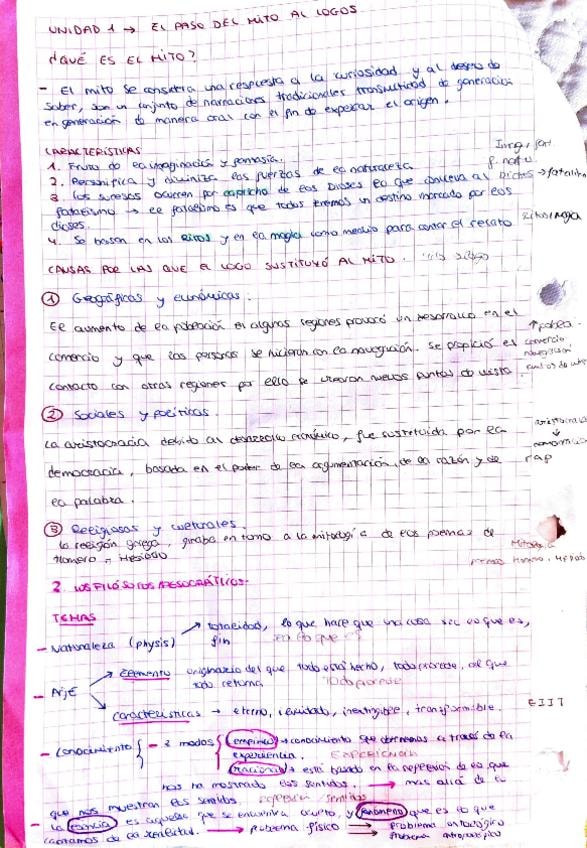 UNIDAD 1 → EL PASO DEL MITO AL LOGOS
¿QUÉ ES EL MITO?
- El mito se considera una respuesta a la curiosidad y al deseo de
saber, son un conjunto de narraciones tradicionales transmitidas de generación
en generación de manera oral con el fin de explicar el origen.
CARACTERÍSTICAS
1. Fruto de la imaginación y fantasía.
2. Personifica y diviniza las fuerzas de la naturaleza
3. Los sucesos ocurren por capricho de los Dioses lo que conlleva al
fatalismo → el fatalismo es que todos tenemos un destino marcado por los
dioses.
4. Se basan en los ritos y en la magia como medio para contar el relato
CAUSAS POR LAS QUE EL LOGO SUSTITUYÓ AL MITO.
① Geográficas y económicas:
El aumento de la población en algunas regiones provocó un desarrollo en el
comercio y que las personas se hicieran con la navegación. Se propició el
contacto con otras regiones por ello se crearon nuevos puntos de vista.
② Sociales y políticas.
La aristocracia debido al desarrollo económico, fue sustituida por la
democracia, basada en el poder de la argumentación, de la razón y de
la palabra.
③ Religiosas y culturales.
la religión griega, giraba en torno a la mitología de los poemas de
Homero y Hesíodo
2. LOS FILÓSOFOS PRESOCRÁTICOS.
TEMAS
- Naturaleza (physis) → totalidad, lo que hace que una cosa sea lo que es,
fin
- Arjé → elemento originario del que todo está hecho, todo procede, al que
todo retorna
características → eterno, ilimitado, inextinguible, transformable. EIIT
- Conocimiento - 2 modos empírico → conocimiento que obtenemos a través de la
experiencia. EXPERIENCIA
racional → está basado en la reflexión de lo que
nos ha mostrado los sentidos. → más allá de lo
que nos muestran los sentidos. reflexión sentidos
- La es aquello que se encuentra oculto, y fenómeno que es lo que
captamos de la realidad. → problema físico → problema ontológico
→ problema antropológico